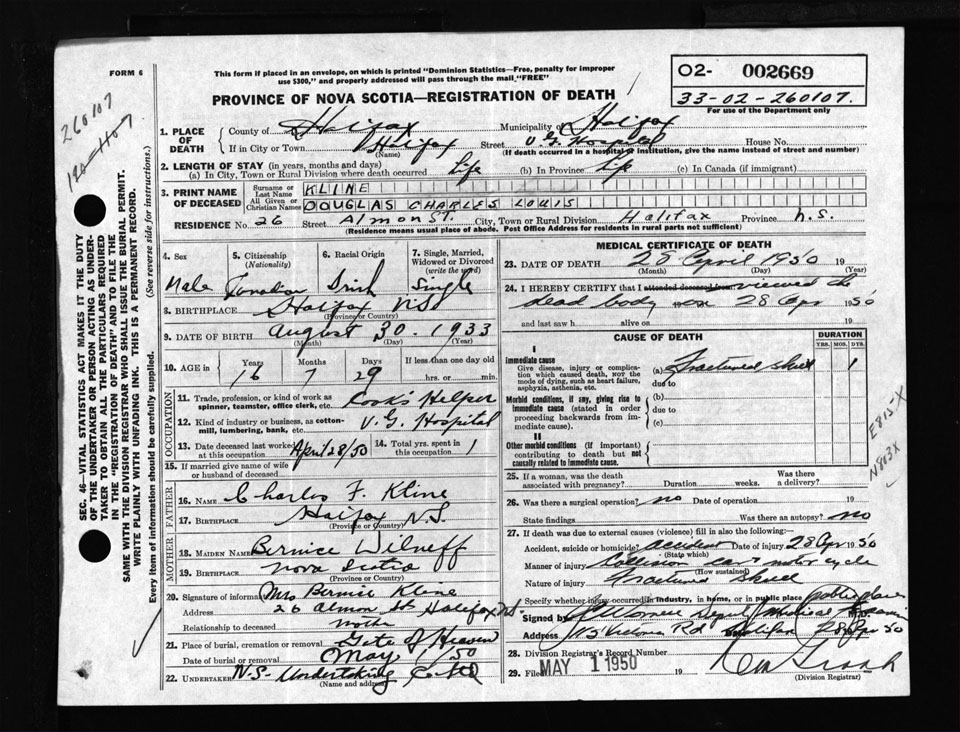 FORM 6
This form if placed in an envelope, on which is printed "Dominion Statistics—Free, penalty for improper
use $300," and properly addressed will pass through the mail "FREE"
02- 002669
33-02-260107.
For use of the Department only
PROVINCE OF NOVA SCOTIA—REGISTRATION OF DEATH
260107
1. PLACE OF DEATH
County of Halifax Municipality of Halifax
If in City or Town Halifax Street V.G. Hospital House No.
(Name) (If death occurred in a hospital or institution, give the name instead of street and number)
2. LENGTH OF STAY (in years, months and days)
(a) In City, Town or Rural Division where death occurred Life (b) In Province Life (c) In Canada (if immigrant)
3. PRINT NAME OF DECEASED
Surname or Last Name KLINE
All Given or Christian Names DOUGLAS CHARLES LOUIS
RESIDENCE No. 26 Street Almon St. City, Town or Rural Division Halifax Province N.S.
(Residence means usual place of abode. Post Office Address for residents in rural parts not sufficient)
4. Sex 5. Citizenship (Nationality) 6. Racial Origin 7. Single, Married, Widowed or Divorced (write the word)
Male Canadian Irish Single
8. BIRTHPLACE Halifax N.S.
(Province or Country)
9. DATE OF BIRTH August 30. 1933
(Month) (Day) (Year)
10. AGE in Years Months Days If less than one day old
16 7 29 hrs. or min.
OCCUPATION
11. Trade, profession, or kind of work as spinner, teamster, office clerk, etc. Cook's Helper
12. Kind of industry or business, as cotton-mill, lumbering, bank, etc. V.G. Hospital
13. Date deceased last worked at this occupation April 28/50 14. Total yrs. spent in this occupation 1
15. If married give name of wife or husband of deceased
FATHER
16. NAME Charles F. Kline
17. BIRTHPLACE Halifax N.S.
(Province or Country)
MOTHER
18. MAIDEN NAME Bernice Wilneff
19. BIRTHPLACE Nova Scotia
(Province or Country)
20. Signature of informant Mrs Bernice Kline
Address 26 Almon St Halifax N.S.
Relationship to deceased mother
21. Place of burial, cremation or removal Gate of Heaven
Date of burial or removal May 1/50
22. UNDERTAKER N.S. Undertaking Co Ltd
(Name and address)
MEDICAL CERTIFICATE OF DEATH
23. DATE OF DEATH April 1950 19
(Month) (Day) (Year)
24. I HEREBY CERTIFY that I attended deceased from viewed the
dead body on 28 Apr 1950
and last saw h alive on 19
CAUSE OF DEATH
DURATION
YRS. MOS. DYS.
I
Immediate cause
Give disease, injury or complication which caused death, NOT the mode of dying, such as heart failure, asphyxia, asthenia, etc.
(a) Fractured skull 1
due to
Morbid conditions, if any, giving rise to immediate cause (stated in order proceeding backwards from immediate cause).
(b)
due to
(c)
II
Other morbid conditions (if important) contributing to death but not causally related to immediate cause.
E815-X
N803X
25. If a woman, was the death associated with pregnancy? Duration weeks. Was there a delivery?
26. Was there a surgical operation? no Date of operation 19
State findings Was there an autopsy? no
27. If death was due to external causes (violence) fill in also the following:-
Accident, suicide or homicide? accident Date of injury 28 Apr 1950
(State which)
Manner of injury Collision car & motor cycle
(How sustained)
Nature of injury Fractured Skull
Specify whether injury occurred in industry, in home, or in public place public place
Signed by Deputy Medical Examiner
Address Victoria Rd Halifax 28 Apr 50
28. Division Registrar's Record Number
29. Filed MAY 1 1950 19
(Division Registrar)
SEC. 46—VITAL STATISTICS ACT MAKES IT THE DUTY
OF THE UNDERTAKER OR PERSON ACTING AS UNDER-
TAKER TO OBTAIN ALL THE PARTICULARS REQUIRED
IN THE "REGISTRATION OF DEATH" AND TO FILE THE
SAME WITH THE DIVISION REGISTRAR WHO SHALL ISSUE THE BURIAL PERMIT.
WRITE PLAINLY WITH UNFADING INK. THIS IS A PERMANENT RECORD.
Every item of information should be carefully supplied. (See reverse side for instructions.)